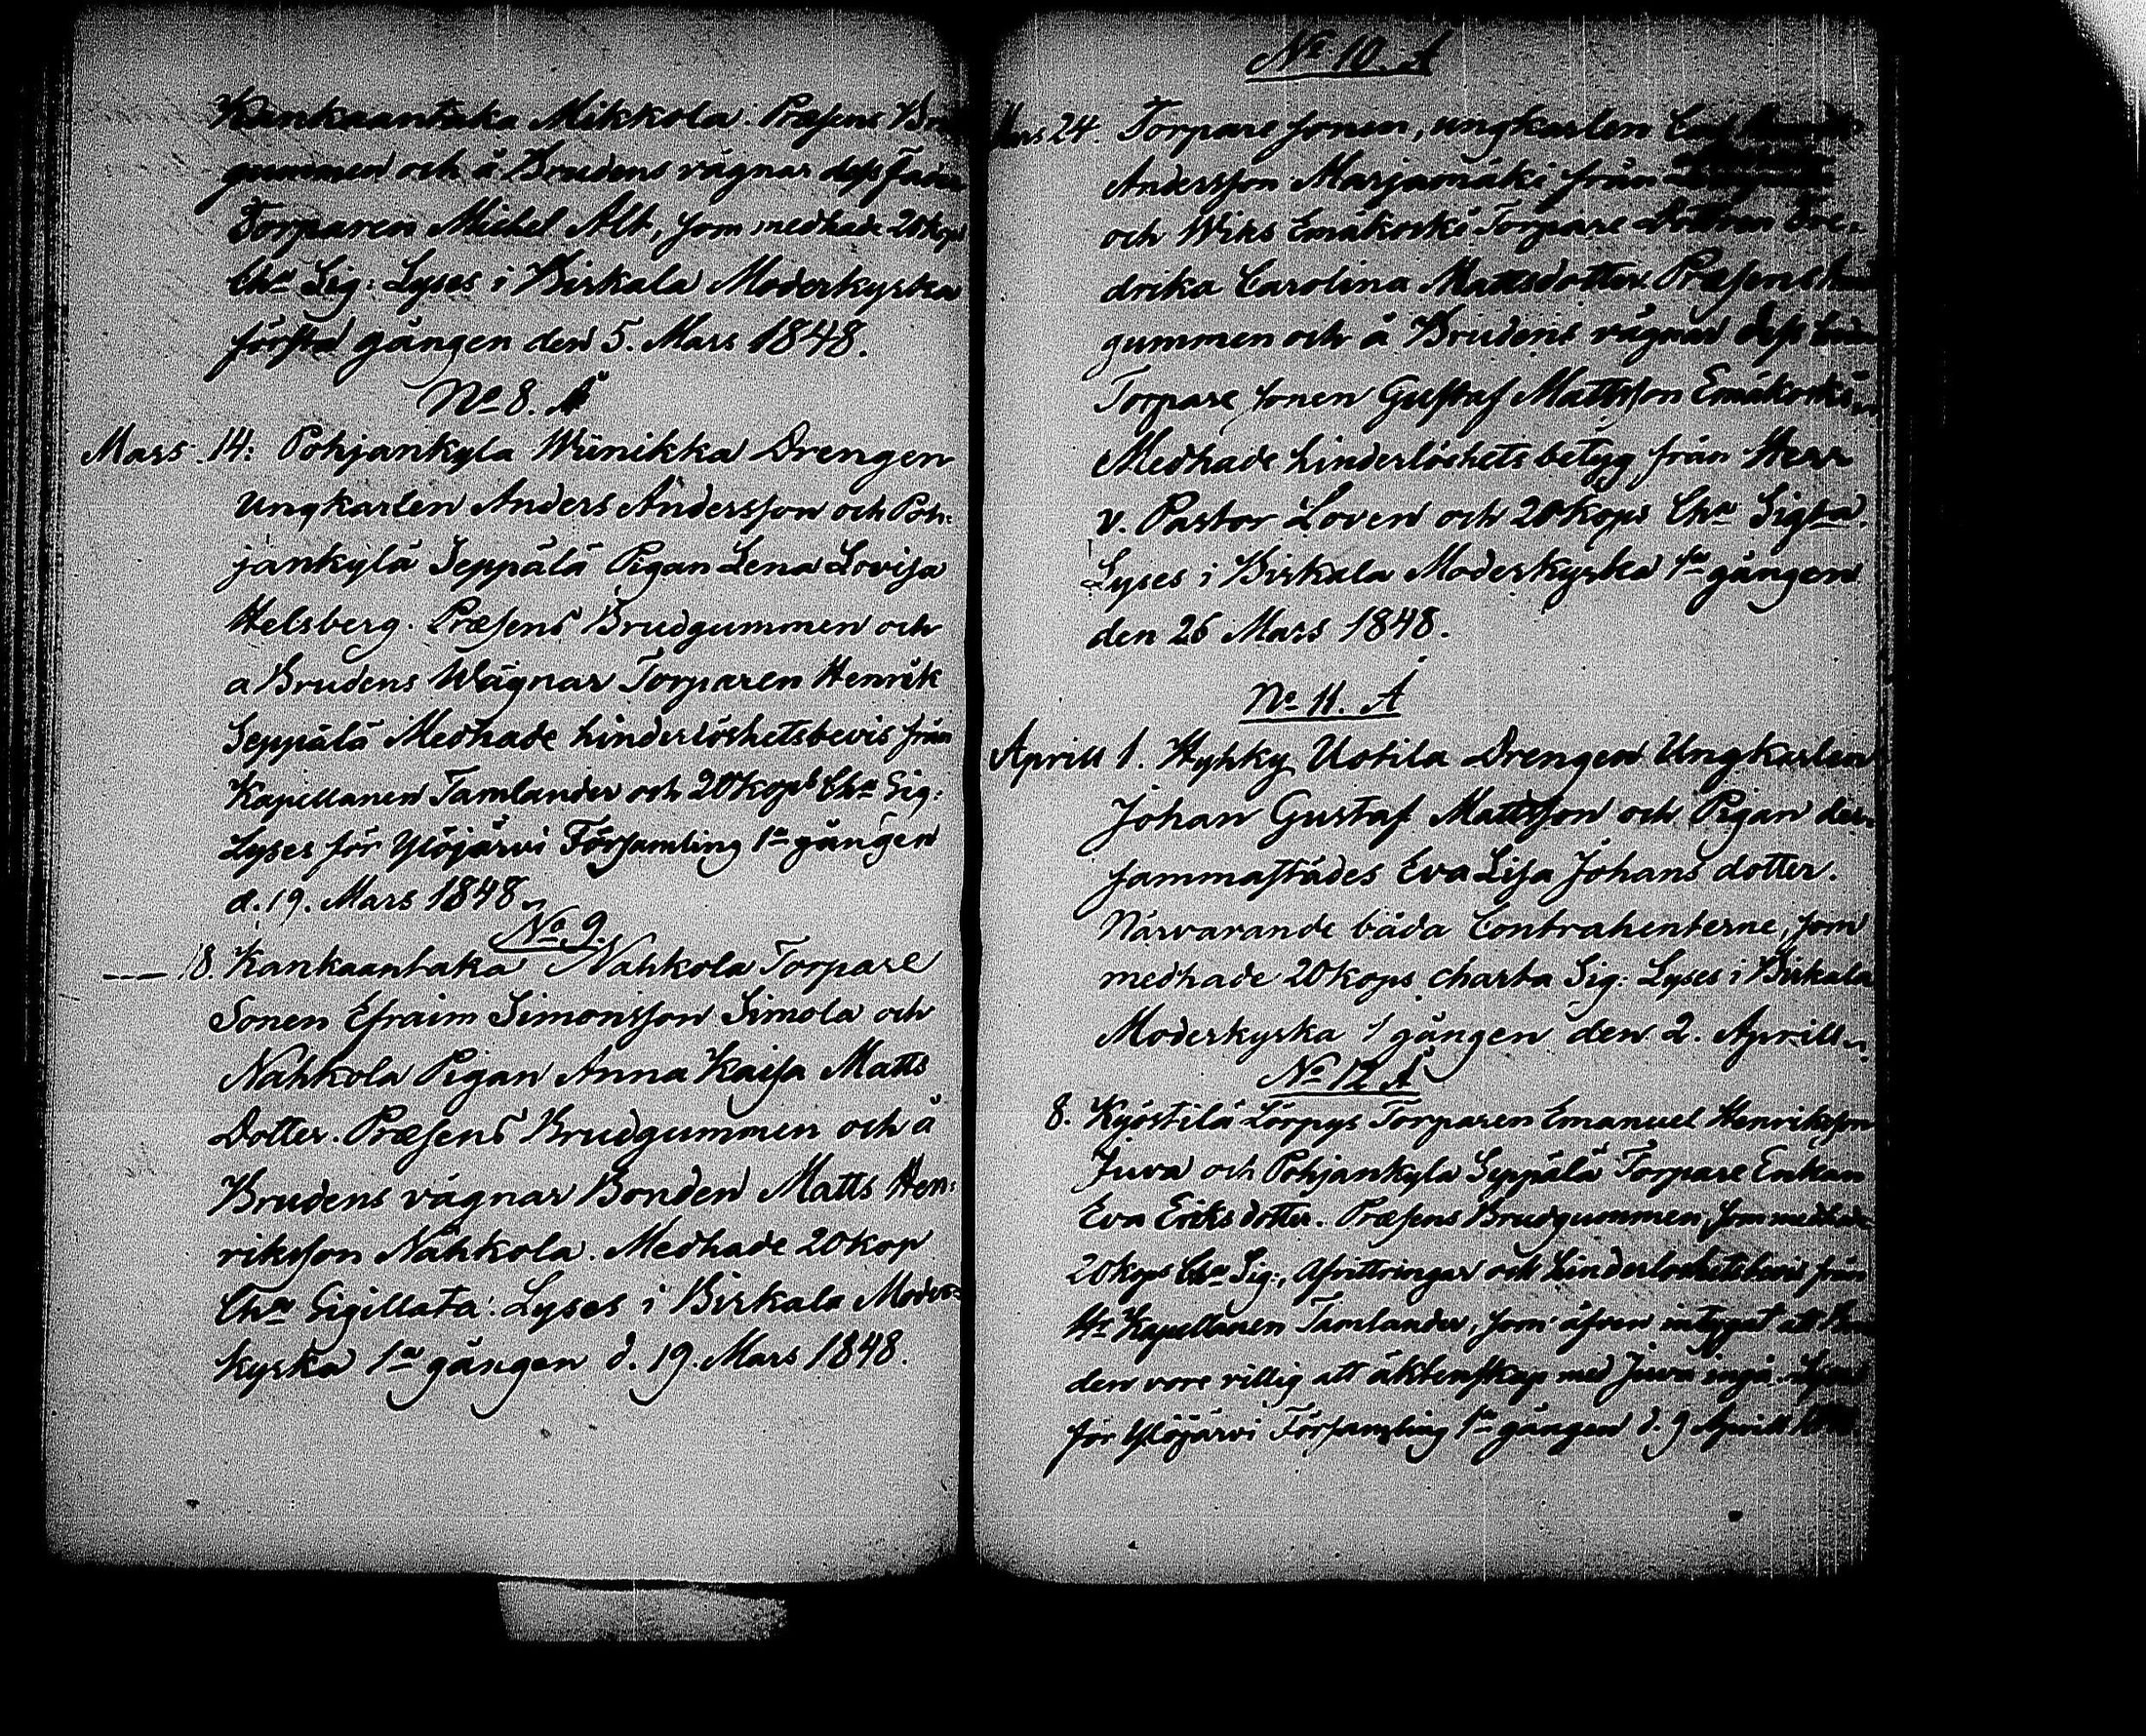 Kankaantaka Mikkola. Præsens Brud
gummen och å Brudens vägnar dess
Torparen Michel Alt, som medhade 20 kop
Cha Sig: Lyses i Birkala Moderkyrka
första gången den 5. Mars 1848.
No 8. Å
Mars. 14: Pohjankyla Wiinikka Drengen
Ungkarlen Anders Andersson och Poh:
jankylä Seppälä Pigan Lena Lovisa
Helsberg. Præsens Brudgummen och
a Brudens Wägnar Torparen Henrik
Seppälä Medhade hinderlöshetsbevis från
Kapellanen Tamlander och 20 kops Cha Sig:
Lyses för Ylöjärvi Församling 1a gången
d. 19. Mars 1848.
No 9.
18. Kankaantaka Nahkola Torpare
Sonen Efraim Simonsson Simola och
Nahkola Pigan Anna Kaisa Matts
Dotter. Præsens Brudgummen och å
Brudens vägnar Bonden Matts Hen:
riksson Nahkola. Medhade 20 kop
Cha Sigillata. Lyses i Birkala Moder-
kyrka 1a gången d. 19. Mars 1848.
No 10. Å
Mars 24. Torpare sonen, ungkarlen
Andersson Marjamäki från
och Wihs Emäkoski Torpare Dottren Fre:
drika Carolina Mattsdotter. Præsens
gummen och å Brudens vägnar dess
Torpare sonen Gustaf Mattsson Emäkoski
Medhade hinderlöshets betyg från Herr
v. Pastor Loven och 20 kops Cha Sigta.
Lyses i Birkala Moderkyrka 1a gången
den 26 Mars 1848.
No 11. Å
Aprill 1. Hyhky Uotila Drengen Ungkarlen
Johan Gustaf Mattsson och Pigan der:
sammastädes Eva Lisa Johans dotter.
Närvarande båda Contrahenterne, som
medhade 20 kops charta Sig: Lyses i Birkala
Moderkyrka 1 gången den 2. Aprill
No 12 Å
8. Kyöstilä Lörpys Torparen Emanuel Henriksson
Juva och Pohjankyla Seppälä Torpare Enkan
Eva Eriks dotter. Præsens Brudgummen, som medhade
20 kops Cha Sig:, Afvittringar och hinderlöshetsbevis från
Hr Kapellanen Tamlander, som äfven intygat att
den vore villig att äktenskap med Juva ingå. Lyses
för Ylöjärvi Församling 1a gången d. 9 Aprill